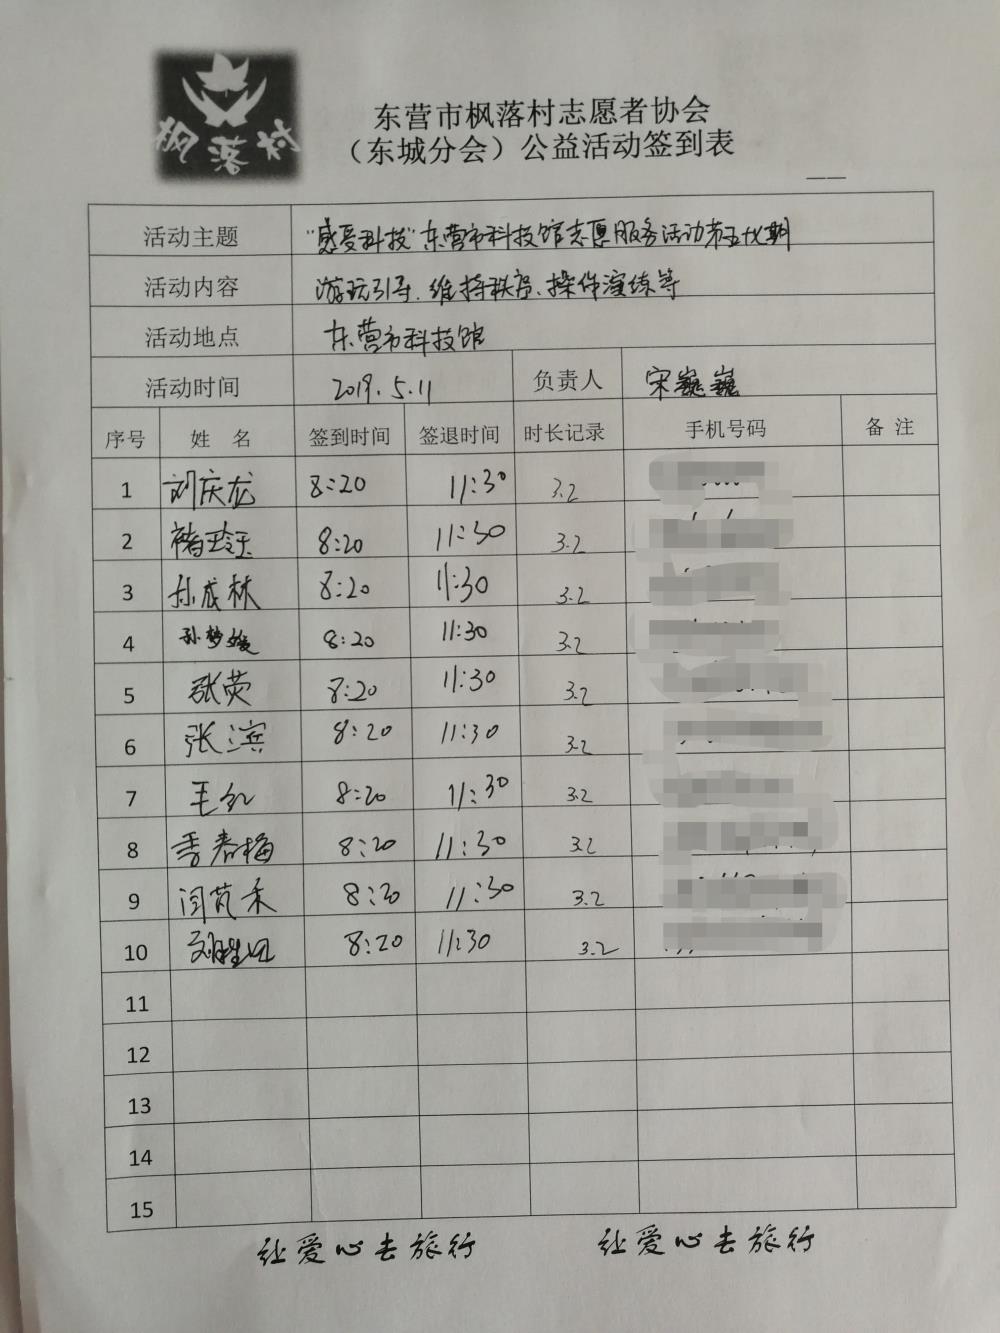 枫落村
东营市枫落村志愿者协会
（东城分会）公益活动签到表
活动主题 "感受科技"东营市科技馆志愿服务活动第五十期
活动内容 游玩引导、维持秩序、操作演练等
活动地点 东营市科技馆
活动时间 2019.5.11 负责人 宋巍巍
序号 姓 名 签到时间 签退时间 时长记录 手机号码 备 注
1 刘庆龙 8:20 11:30 3.2
2 褚玲玉 8:20 11:30 3.2
3 孙成林 8:20 11:30 3.2
4 孙梦媛 8:20 11:30 3.2
5 张荧 8:20 11:30 3.2
6 张滨 8:20 11:30 3.2
7 毛红 8:20 11:30 3.2
8 季春梅 8:20 11:30 3.2
9 闫芃禾 8:20 11:30 3.2
10 8:20 11:30 3.2
11
12
13
14
15
让爱心去旅行 让爱心去旅行